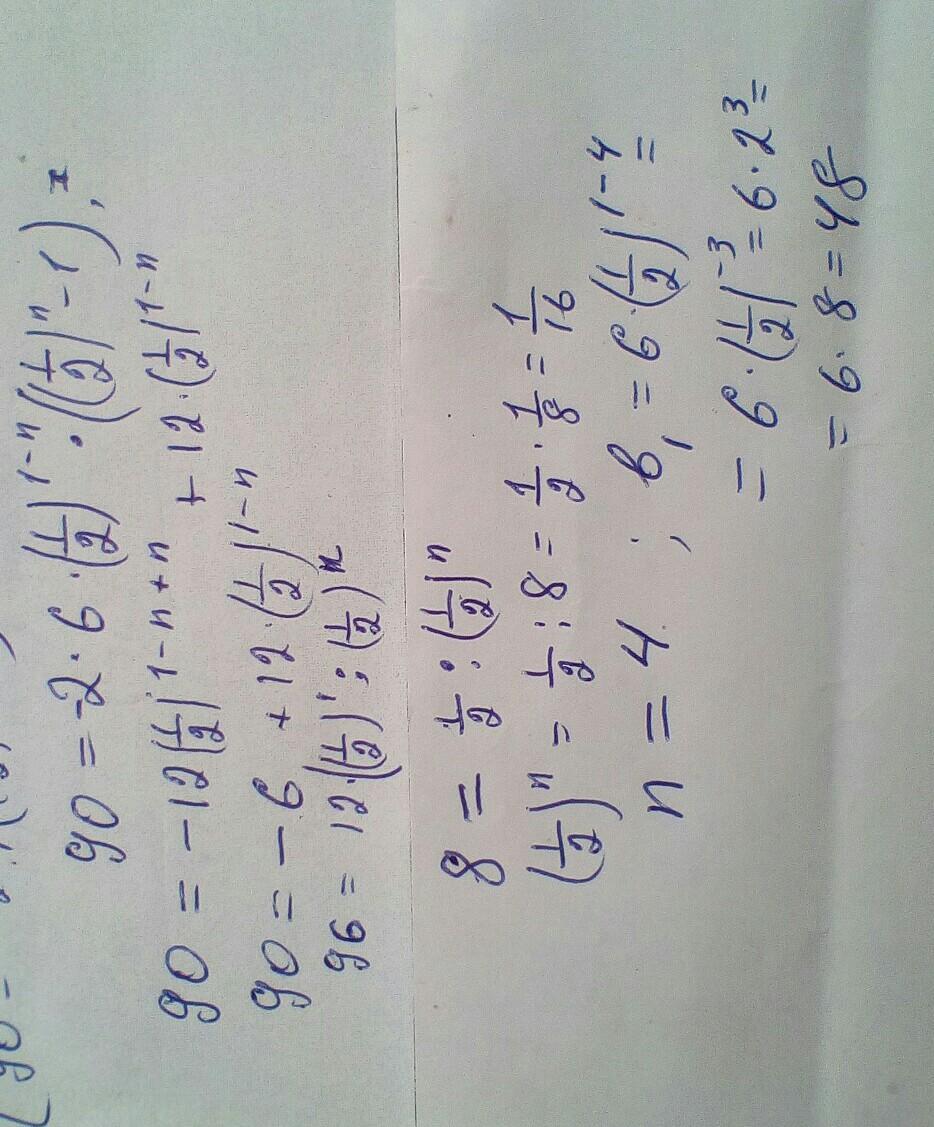 90 = -2·6·(1/2)^{1-n}·((1/2)^n-1),
90 = -12(1/2)^{1-n+n} + 12·(1/2)^{1-n}
90 = -6 + 12·(1/2)^{1-n}
96 = 12·((1/2)^1:(1/2)^n
8 = 1/2:(1/2)^n
(1/2)^n = 1/2:8 = 1/2·1/8 = 1/16
n = 4 ; b_1 = 6·(1/2)^{1-4} =
= 6·(1/2)^{-3} = 6·2^3 =
= 6·8 = 48